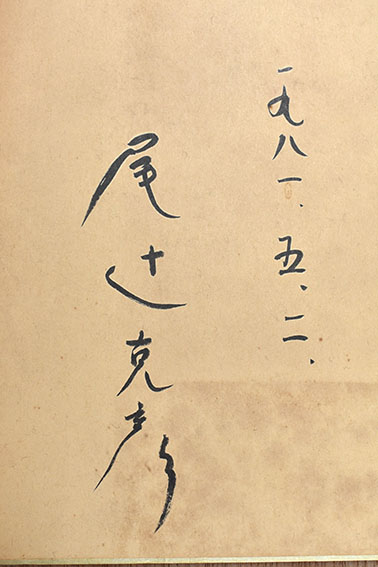 一九八一、五、二、
尾辻克彦